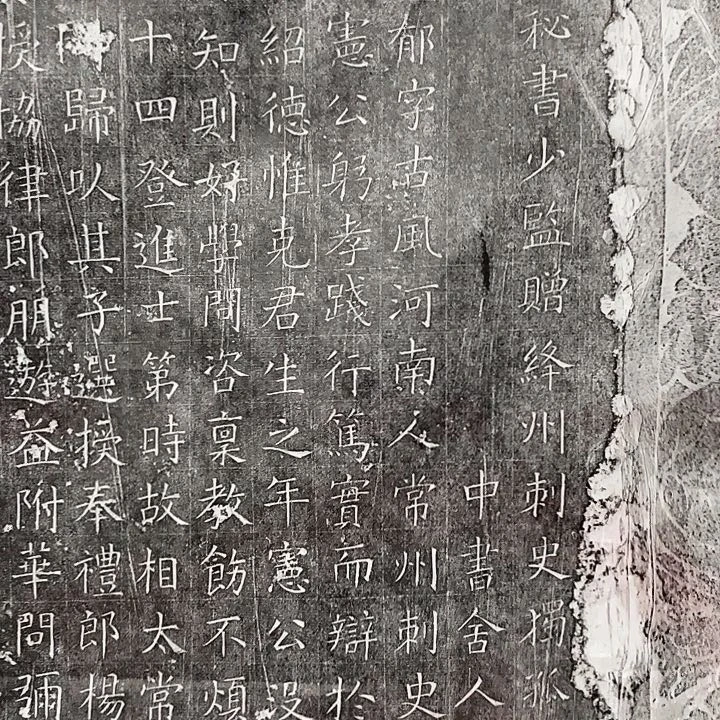 秘書少監贈絳州刺史獨孤
中書舍人
郁字古風河南人常州刺史
憲公躬孝踐行篤實而辯於
紹德惟克君生之年憲公沒
知則好學問咨稟教飭不煩
十四登進士第時故相太常
歸以其子選授奉禮郎楊
授協律郎朋遊益附華問彌